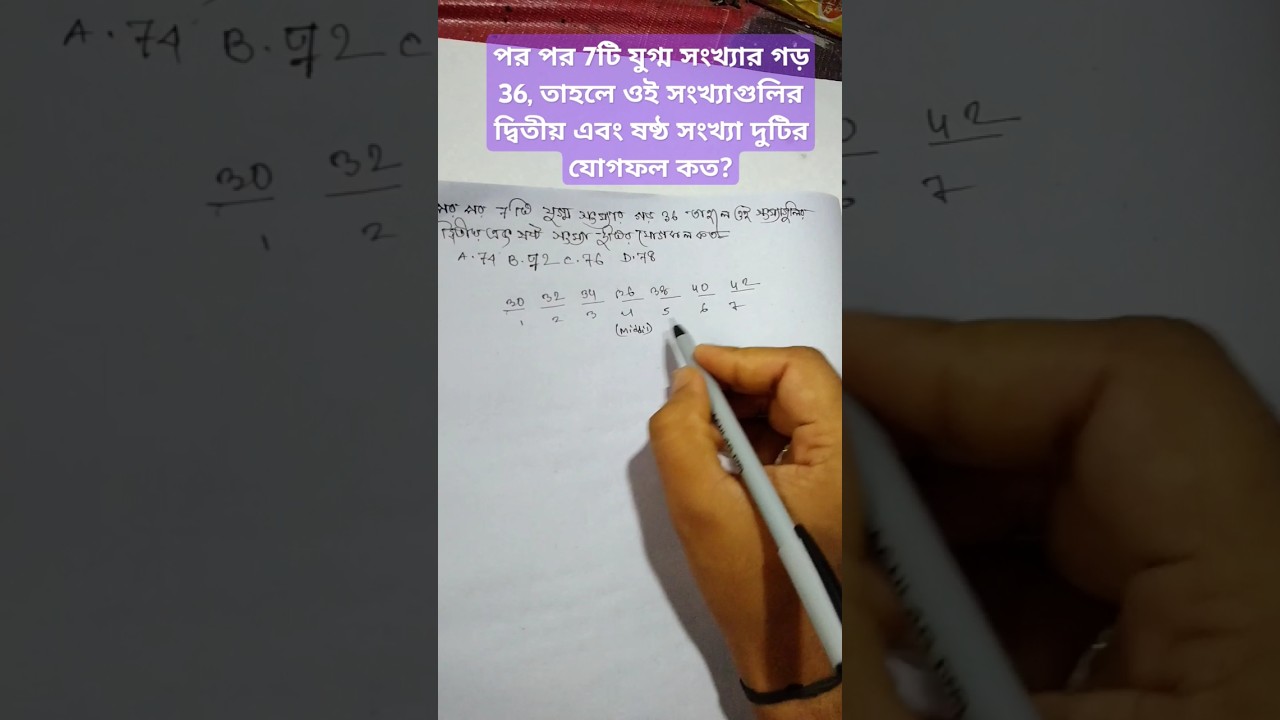 পর পর 7টি যুগ্ম সংখ্যার গড়
36, তাহলে ওই সংখ্যাগুলির
দ্বিতীয় এবং ষষ্ঠ সংখ্যা দুটির
যোগফল কত?
পর পর 7টি যুগ্ম সংখ্যার গড় 36 তাহলে ওই সংখ্যাগুলির
দ্বিতীয় এবং ষষ্ঠ সংখ্যা দুটির যোগফল কত
A.74 B.72 C.76 D.78
30 32 34 36 38 40 42
1 2 3 4 5 6 7
A.74 B.72 C
30 32
1 2
42
7